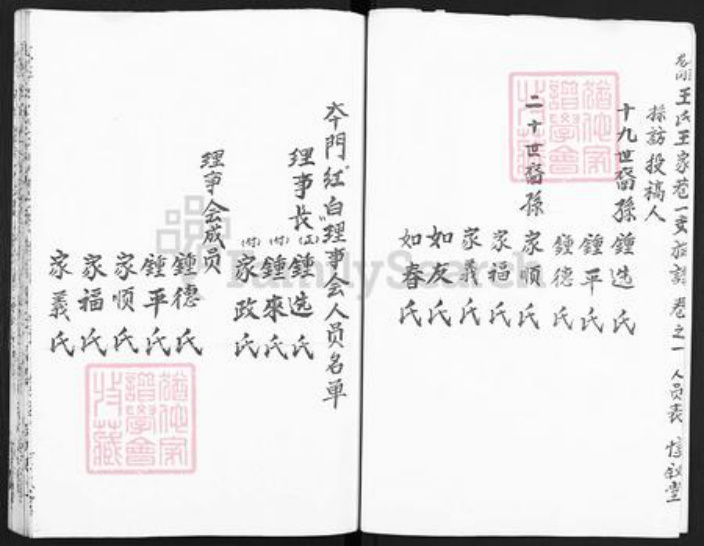 王氏王家巷一支族譜 卷之一 人员表 惇叙堂
採訪投稿人
十九世裔孫 鍾选氏
鍾平氏
鍾德氏
二十世裔孫 家顺氏
家福氏
家義氏
如友氏
如春氏
本門红白理事会人员名单
理事长(正)鍾选氏
(付)鍾來氏
(付)家政氏
理事会成员
鍾德氏
鍾平氏
家顺氏
家福氏
家義氏
FamilySearch